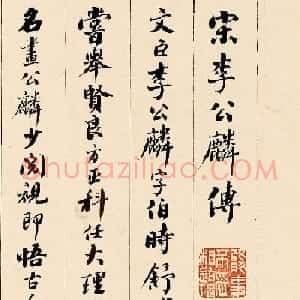 宋李公麟傳
文臣李公麟字伯時舒
嘗舉賢良方正科任大理
名畫公麟少閱視即悟古
shufaziliao.com